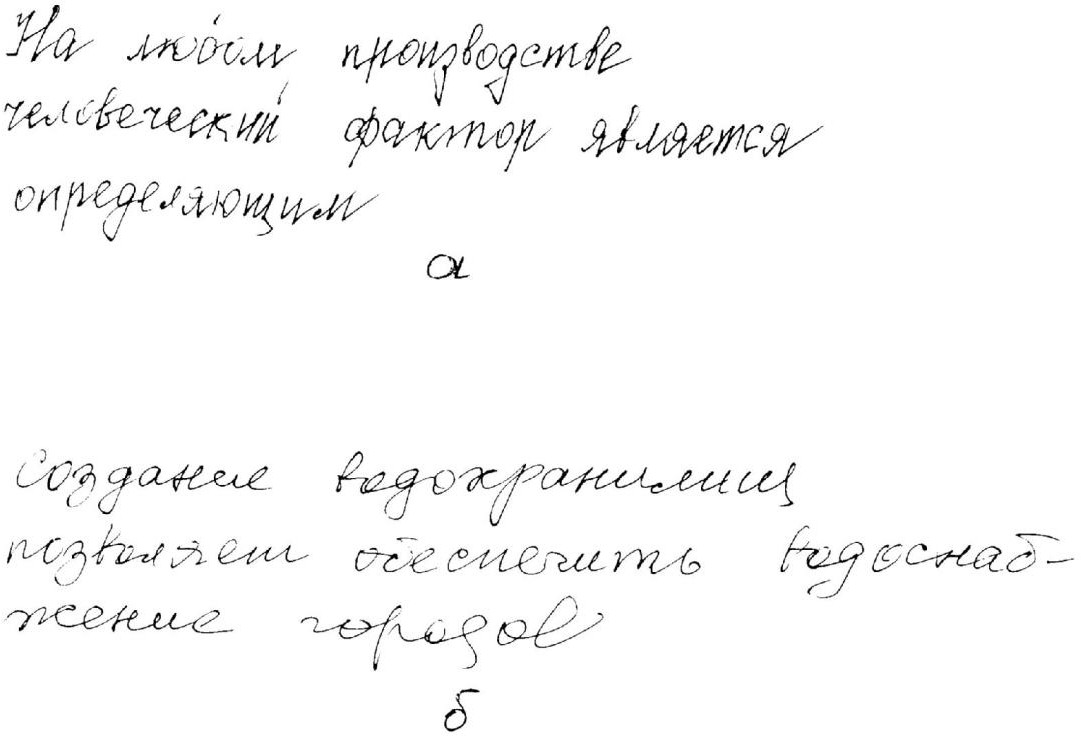 На любом производстве
человеческий фактор является
определяющим
а
Создание водохранилищ
позволяет обеспечить водоснаб-
жение городов
б